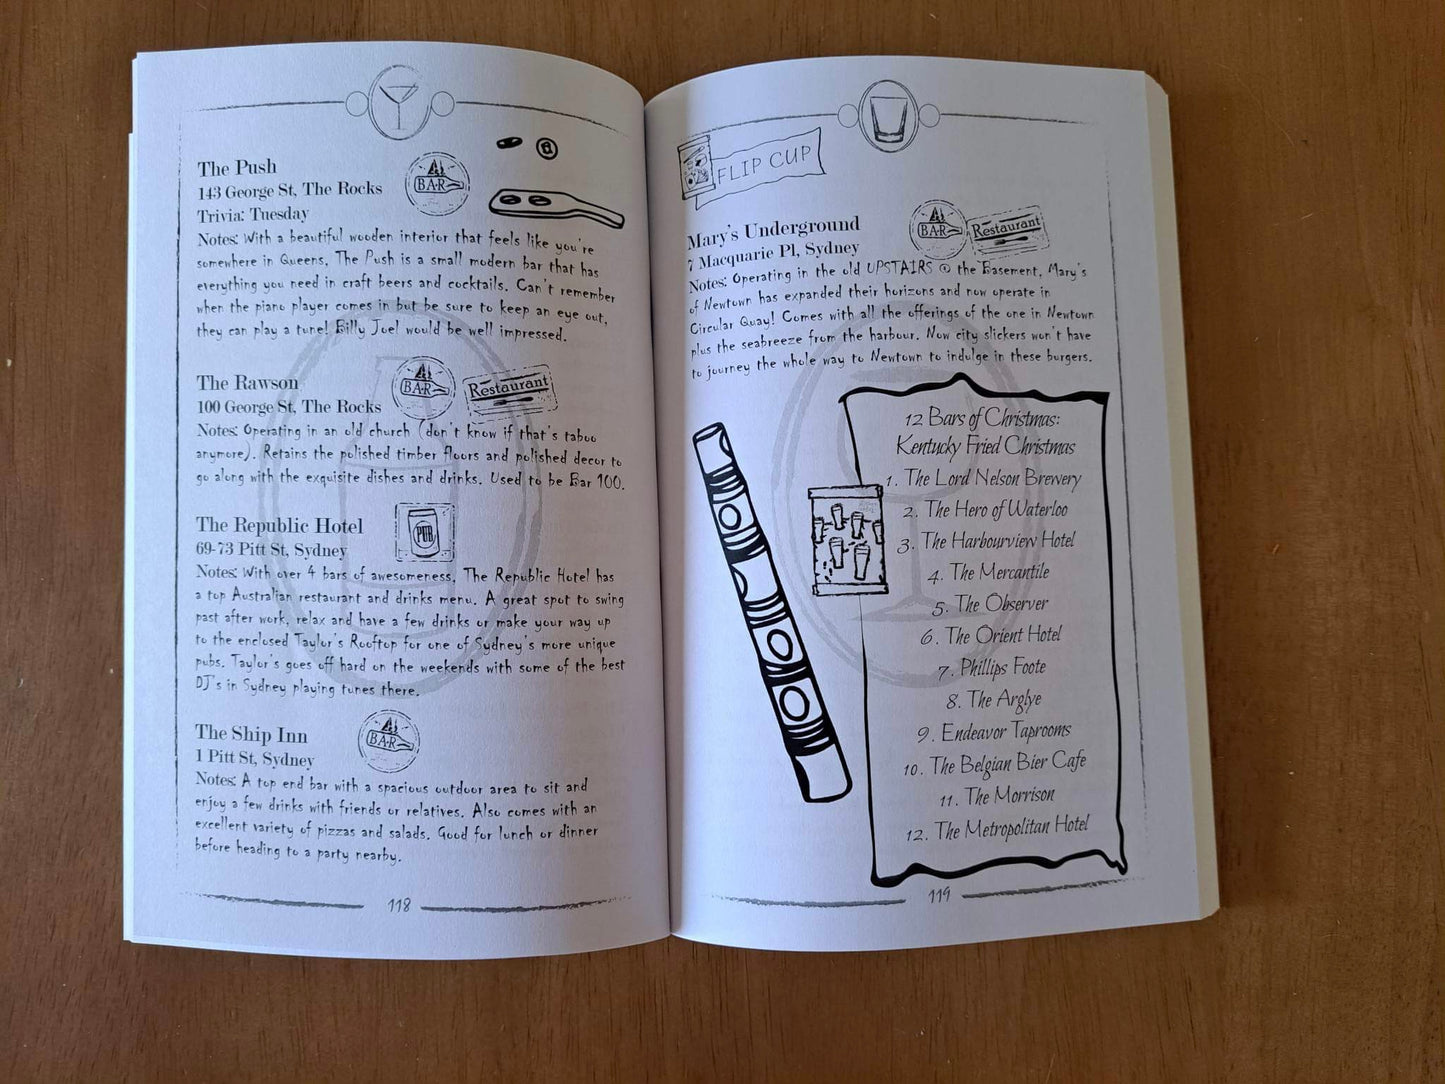 The Push
143 George St, The Rocks
Trivia: Tuesday
BAR
Notes: With a beautiful wooden interior that feels like you're
somewhere in Queens, The Push is a small modern bar that has
everything you need in craft beers and cocktails. Can't remember
when the piano player comes in but be sure to keep an eye out,
they can play a tune! Billy Joel would be well impressed.
The Rawson
100 George St, The Rocks
BAR
Restaurant
Notes: Operating in an old church (don't know if that's taboo
anymore). Retains the polished timber floors and polished decor to
go along with the exquisite dishes and drinks. Used to be Bar 100.
The Republic Hotel
69-73 Pitt St, Sydney
PUB
Notes: With over 4 bars of awesomeness, The Republic Hotel has
a top Australian restaurant and drinks menu. A great spot to swing
past after work, relax and have a few drinks or make your way up
to the enclosed Taylor's Rooftop for one of Sydney's more unique
pubs. Taylor's goes off hard on the weekends with some of the best
DJ's in Sydney playing tunes there.
The Ship Inn
1 Pitt St, Sydney
BAR
Notes: A top end bar with a spacious outdoor area to sit and
enjoy a few drinks with friends or relatives. Also comes with an
excellent variety of pizzas and salads. Good for lunch or dinner
before heading to a party nearby.
118
FLIP CUP
Mary's Underground
7 Macquarie Pl, Sydney
BAR
Restaurant
Notes: Operating in the old UPSTAIRS @ the Basement, Mary's
of Newtown has expanded their horizons and now operate in
Circular Quay! Comes with all the offerings of the one in Newtown
plus the seabreeze from the harbour. Now city slickers won't have
to journey the whole way to Newtown to indulge in these burgers.
12 Bars of Christmas:
Kentucky Fried Christmas
1. The Lord Nelson Brewery
2. The Hero of Waterloo
3. The Harbourview Hotel
4. The Mercantile
5. The Observer
6. The Orient Hotel
7. Phillips Foote
8. The Arglye
9. Endeavor Taprooms
10. The Belgian Bier Cafe
11. The Morrison
12. The Metropolitan Hotel
119